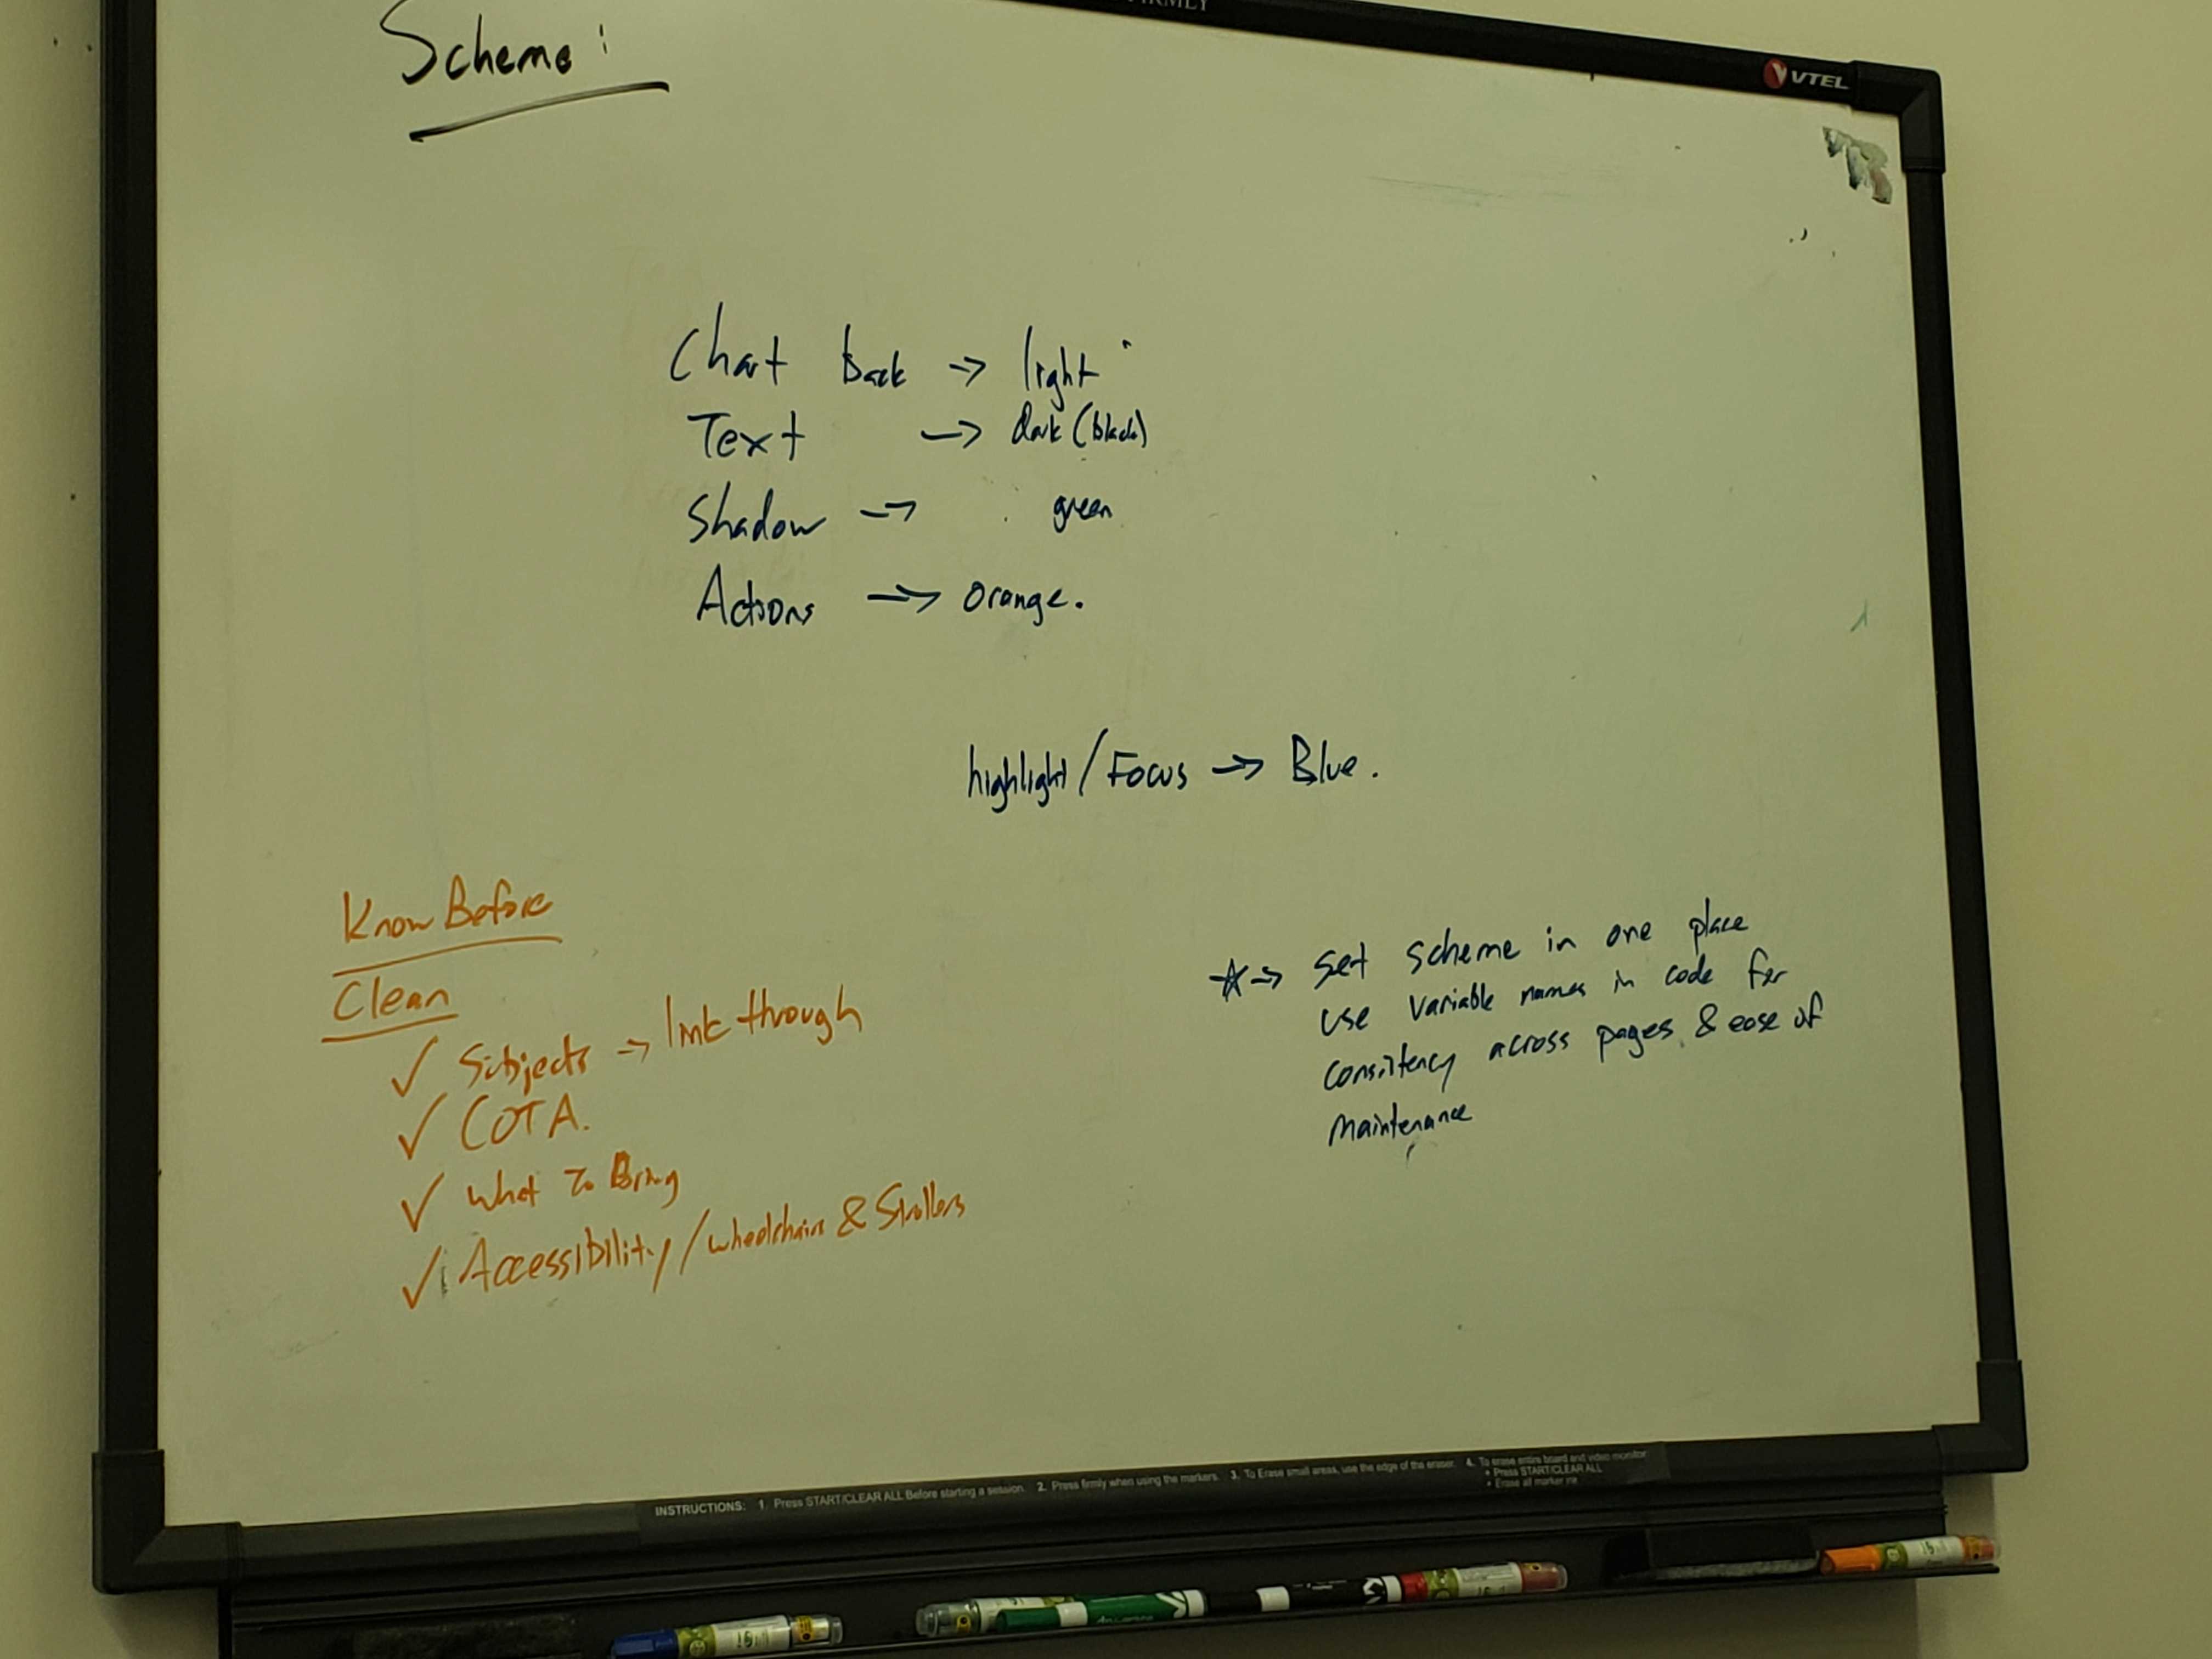 Scheme:
VTEL
Chart back -> light
Text -> dark (black)
Shadow -> green
Actions -> orange.
highlight/Focus -> Blue.
Know Before
Clean
✓ Subjects -> link through
✓ COTA.
✓ What To Bring
✓ Accessibility/wheelchairs & Strollers
☆-> Set scheme in one place
use variable names in code for
consistency across pages & ease of
maintenance
INSTRUCTIONS: 1. Press START/CLEAR ALL Before starting a session. 2. Press firmly when using the markers. 3. To Erase small areas, use the edge of the eraser. 4. To erase entire board and video monitor
• Press START/CLEAR ALL
• Erase all marker ink